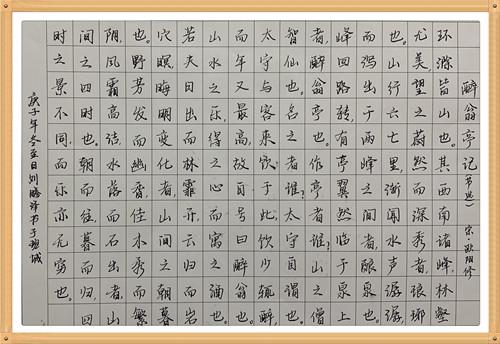 醉翁亭记(节选) 宋·欧阳修
环滁皆山也。其西南诸峰,林壑
尤美,望之蔚然而深秀者,琅琊
也。山行六七里,渐闻水声潺潺
而泻出于两峰之间者,酿泉也。
峰回路转,有亭翼然临于泉上
者,醉翁亭也。作亭者谁?山之僧
智仙也。名之者谁?太守自谓也。
太守与客来饮于此,饮少辄醉,
而年又最高,故自号曰醉翁也。
山水之乐,得之心而寓之酒也。
若夫日出而林霏开,云归而岩
穴暝,晦明变化者,山间之朝暮
也。野芳发而幽香,佳木秀而繁
阴,风霜高洁,水落而石出者,山
间之四时也。朝而往,暮而归,四
时之景不同,而乐亦无穷也。
庚子年冬至日刘腾书于城